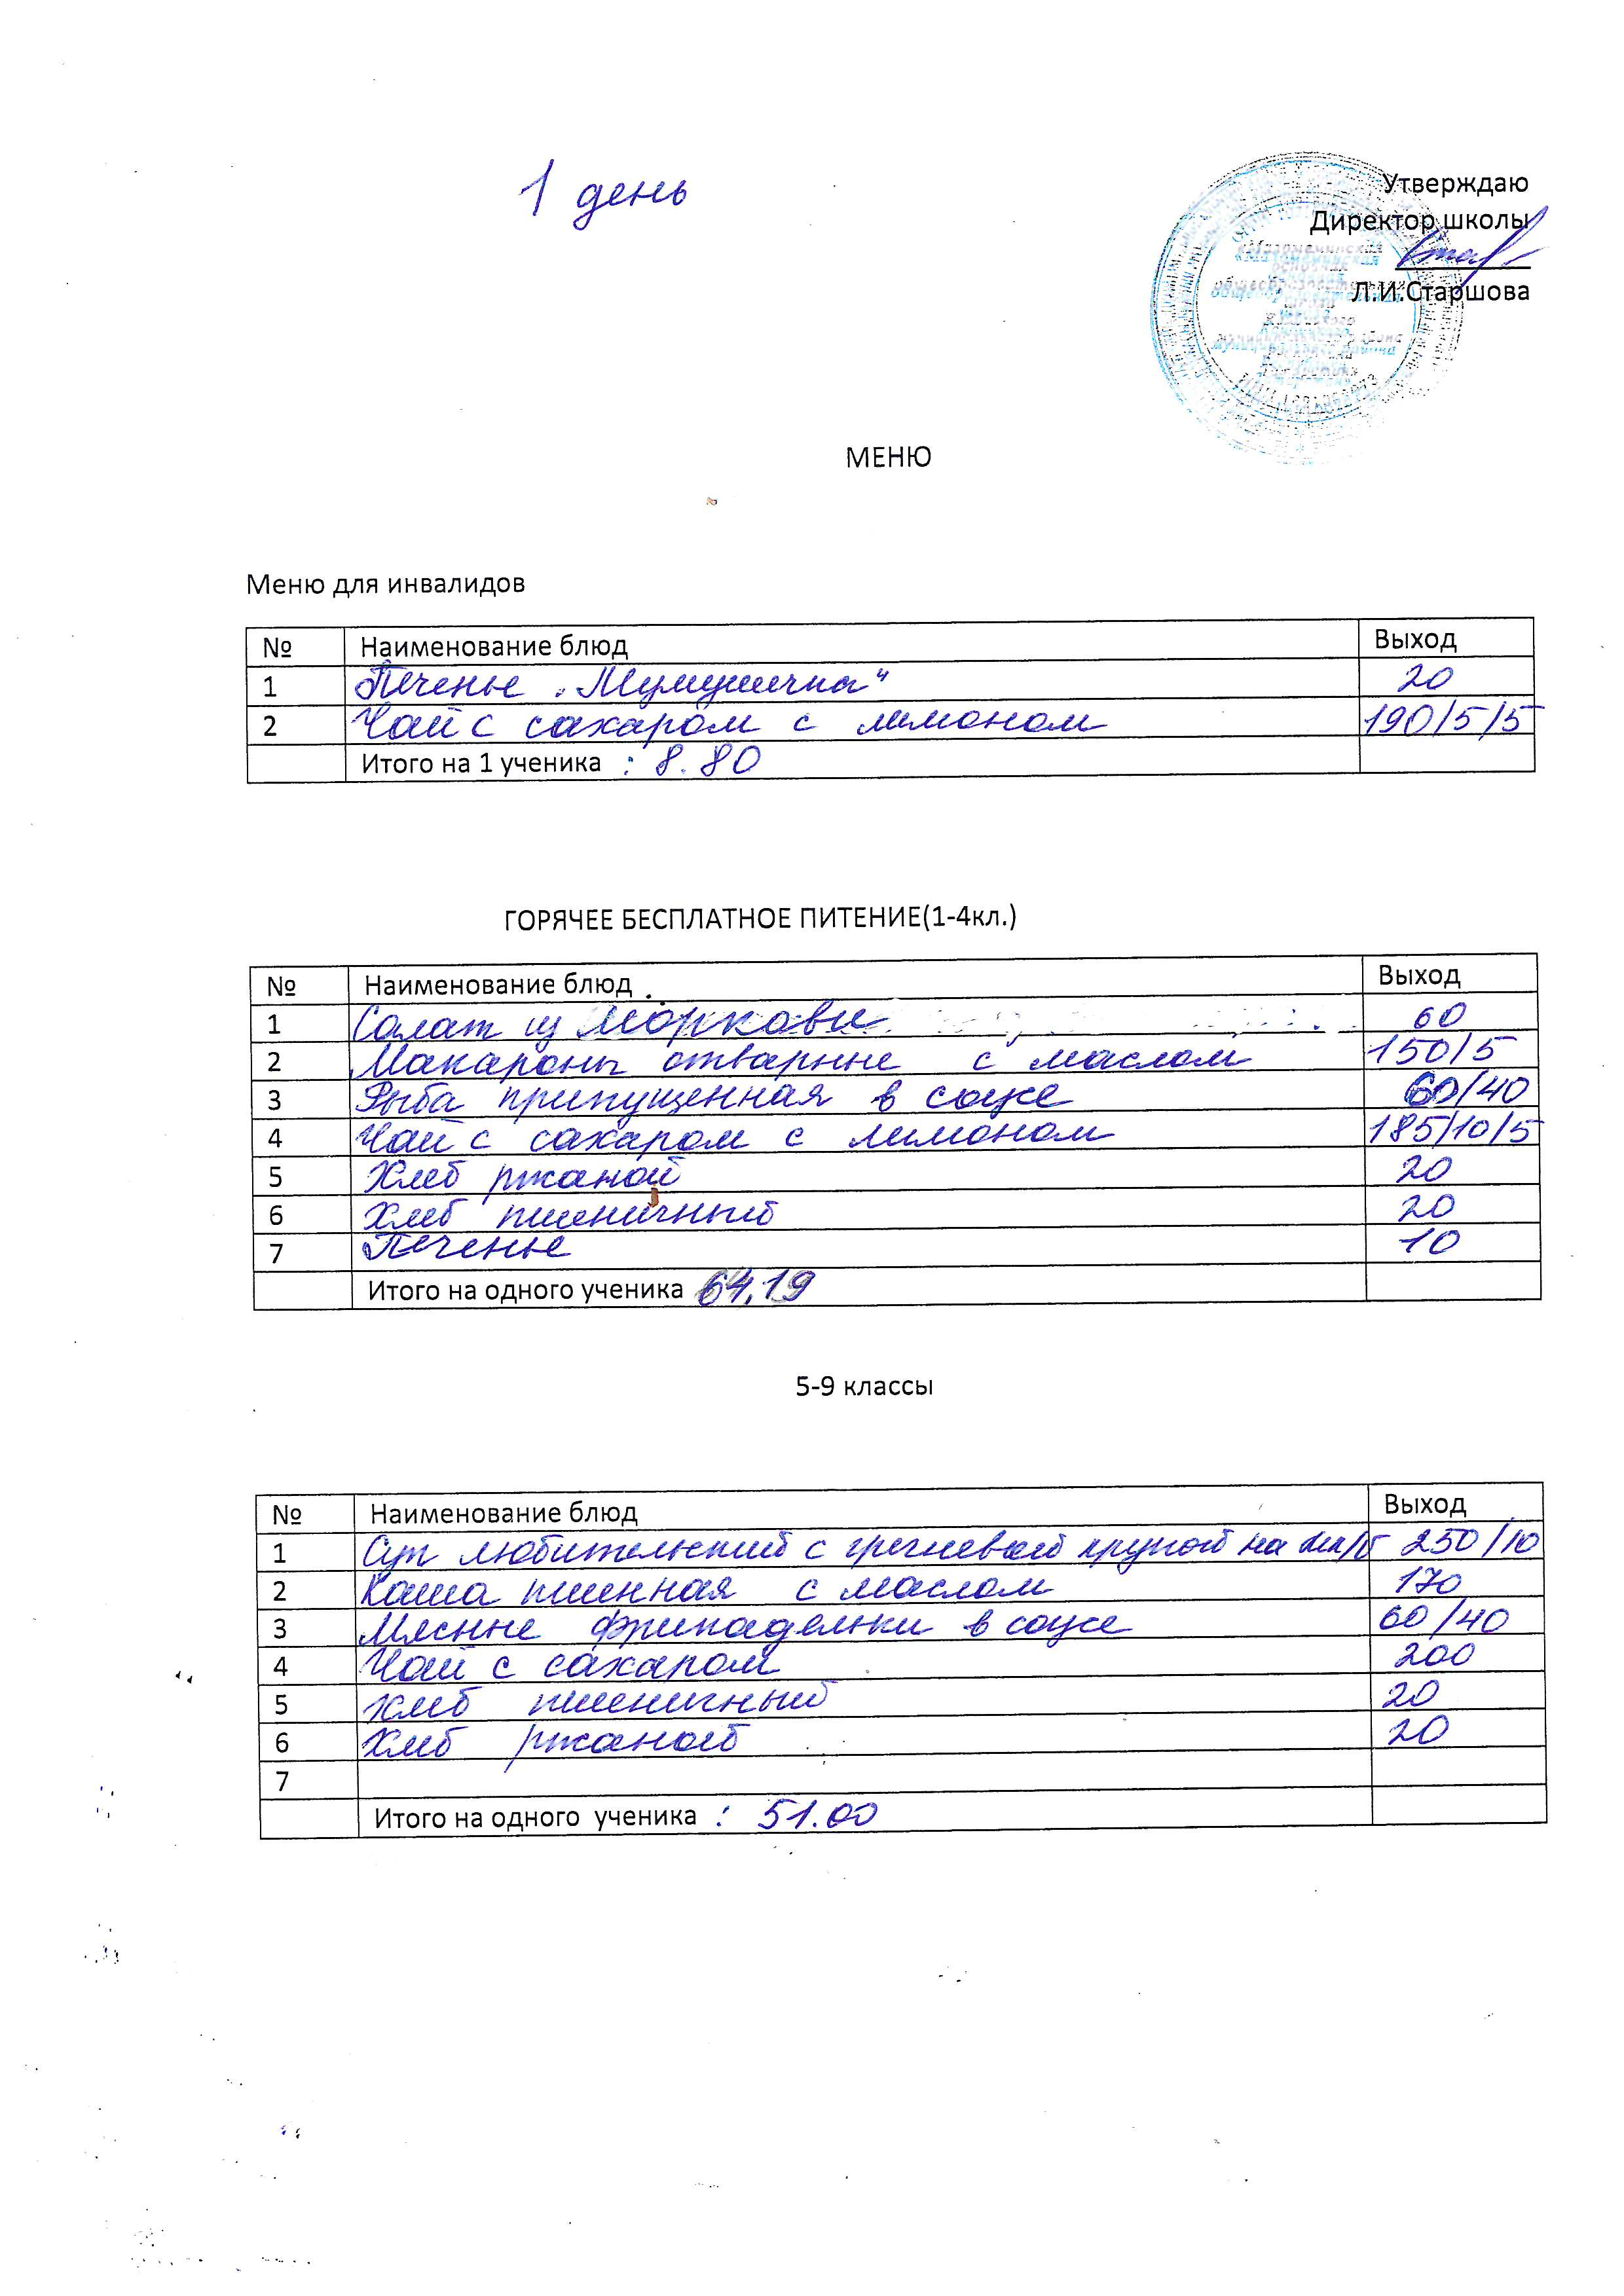 1 день
Утверждаю
Директор школы
Л.И.Старшова
МЕНЮ
Меню для инвалидов
№ Наименование блюд Выход
1 Печенье 20
2 Чай с сахаром с лимоном 190/5/5
Итого на 1 ученика : 8.80
ГОРЯЧЕЕ БЕСПЛАТНОЕ ПИТЕНИЕ(1-4кл.)
№ Наименование блюд Выход
1 Салат из моркови 60
2 Макароны отварные с маслом 150/5
3 Рыба припущенная в соусе 60/40
4 Чай с сахаром с лимоном 185/10/5
5 Хлеб ржаной 20
6 Хлеб пшеничный 20
7 Печенье 10
Итого на одного ученика 64,19
5-9 классы
№ Наименование блюд Выход
1 Суп любительский с гречневой крупой на 250/10
2 Каша пшенная с маслом 170
3 Мясные фрикадельки в соусе 60/40
4 Чай с сахаром 200
5 Хлеб пшеничный 20
6 Хлеб ржаной 20
7
Итого на одного ученика : 51.00